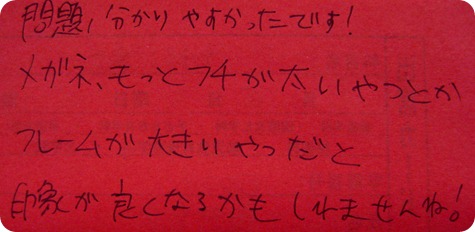 問題、分かりやすかったです!
メガネ、もっとフチが太いやつとか
フレームが大きいやつだと
印象が良くなるかもしれませんね!